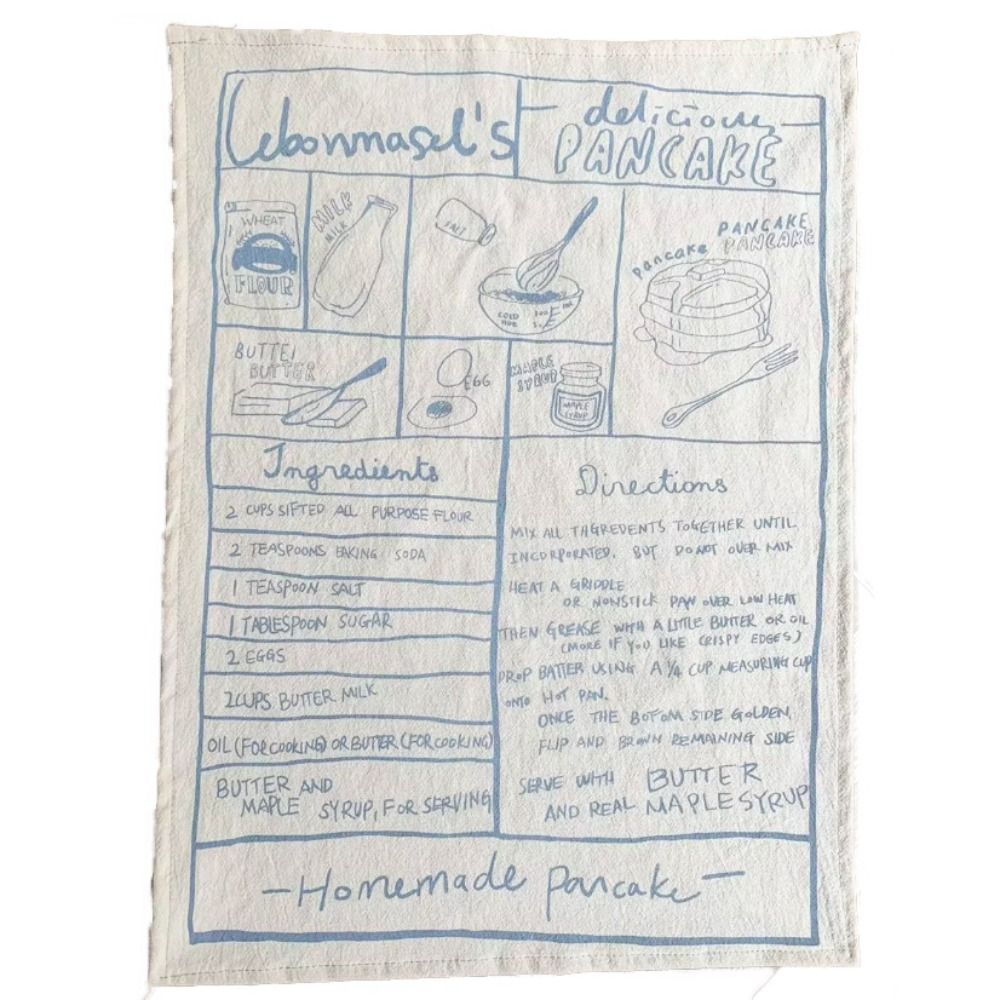 Lebonmasel's
delicious
PANCAKE
WHEAT
FLOUR
MILK
MILK
SALT
COLD
PANCAKE
PANCAKE
pancake
BUTTE
BUTTER
EGG
MAPLE
SYRUP
MAPLE
SYRUP
Ingredients
2 CUPS SIFTED ALL PURPOSE FLOUR
2 TEASPOONS BAKING SODA
1 TEASPOON SALT
1 TABLESPOON SUGAR
2 EGGS
2 CUPS BUTTER MILK
OIL (FOR COOKING) OR BUTTER (FOR COOKING)
BUTTER AND
MAPLE SYRUP, FOR SERVING
Directions
MIX ALL INGREDENTS TOGETHER UNTIL
INCORPORATED. BUT DO NOT OVER MIX
HEAT A GRIDDLE
OR NONSTICK PAN OVER LOW HEAT
THEN GREASE WITH A LITTLE BUTTER OR OIL
(MORE IF YOU LIKE CRISPY EDGES)
DROP BATTER USING A 1/4 CUP MEASURING CUP
ONTO HOT PAN.
ONCE THE BOTOM SIDE GOLDEN
FLIP AND BROWN REMAINING SIDE
SERVE WITH BUTTER
AND REAL MAPLE SYRUP
-Homemade pancake-